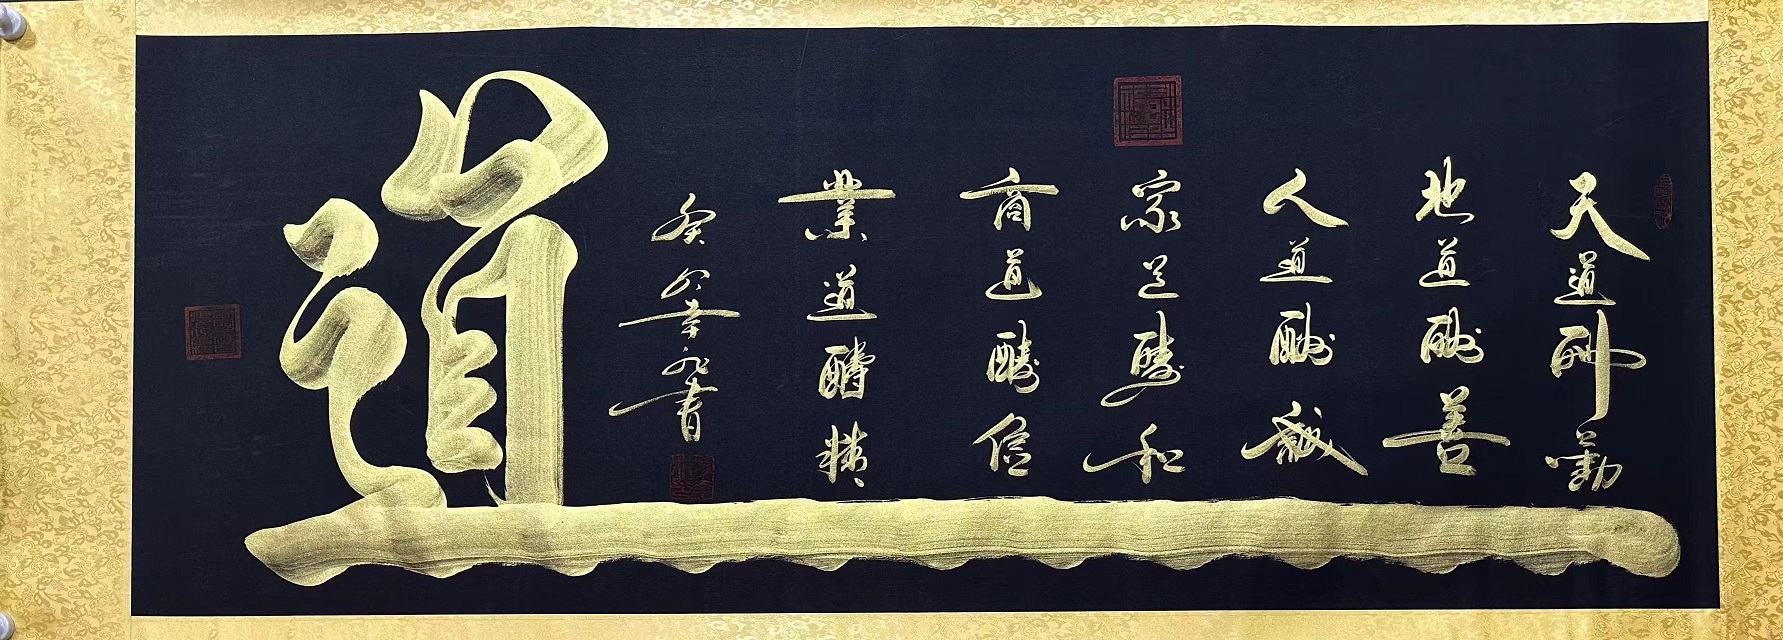 天道酬勤
地道酬善
人道酬誠
家道酬和
商道酬信
業道酬精
道